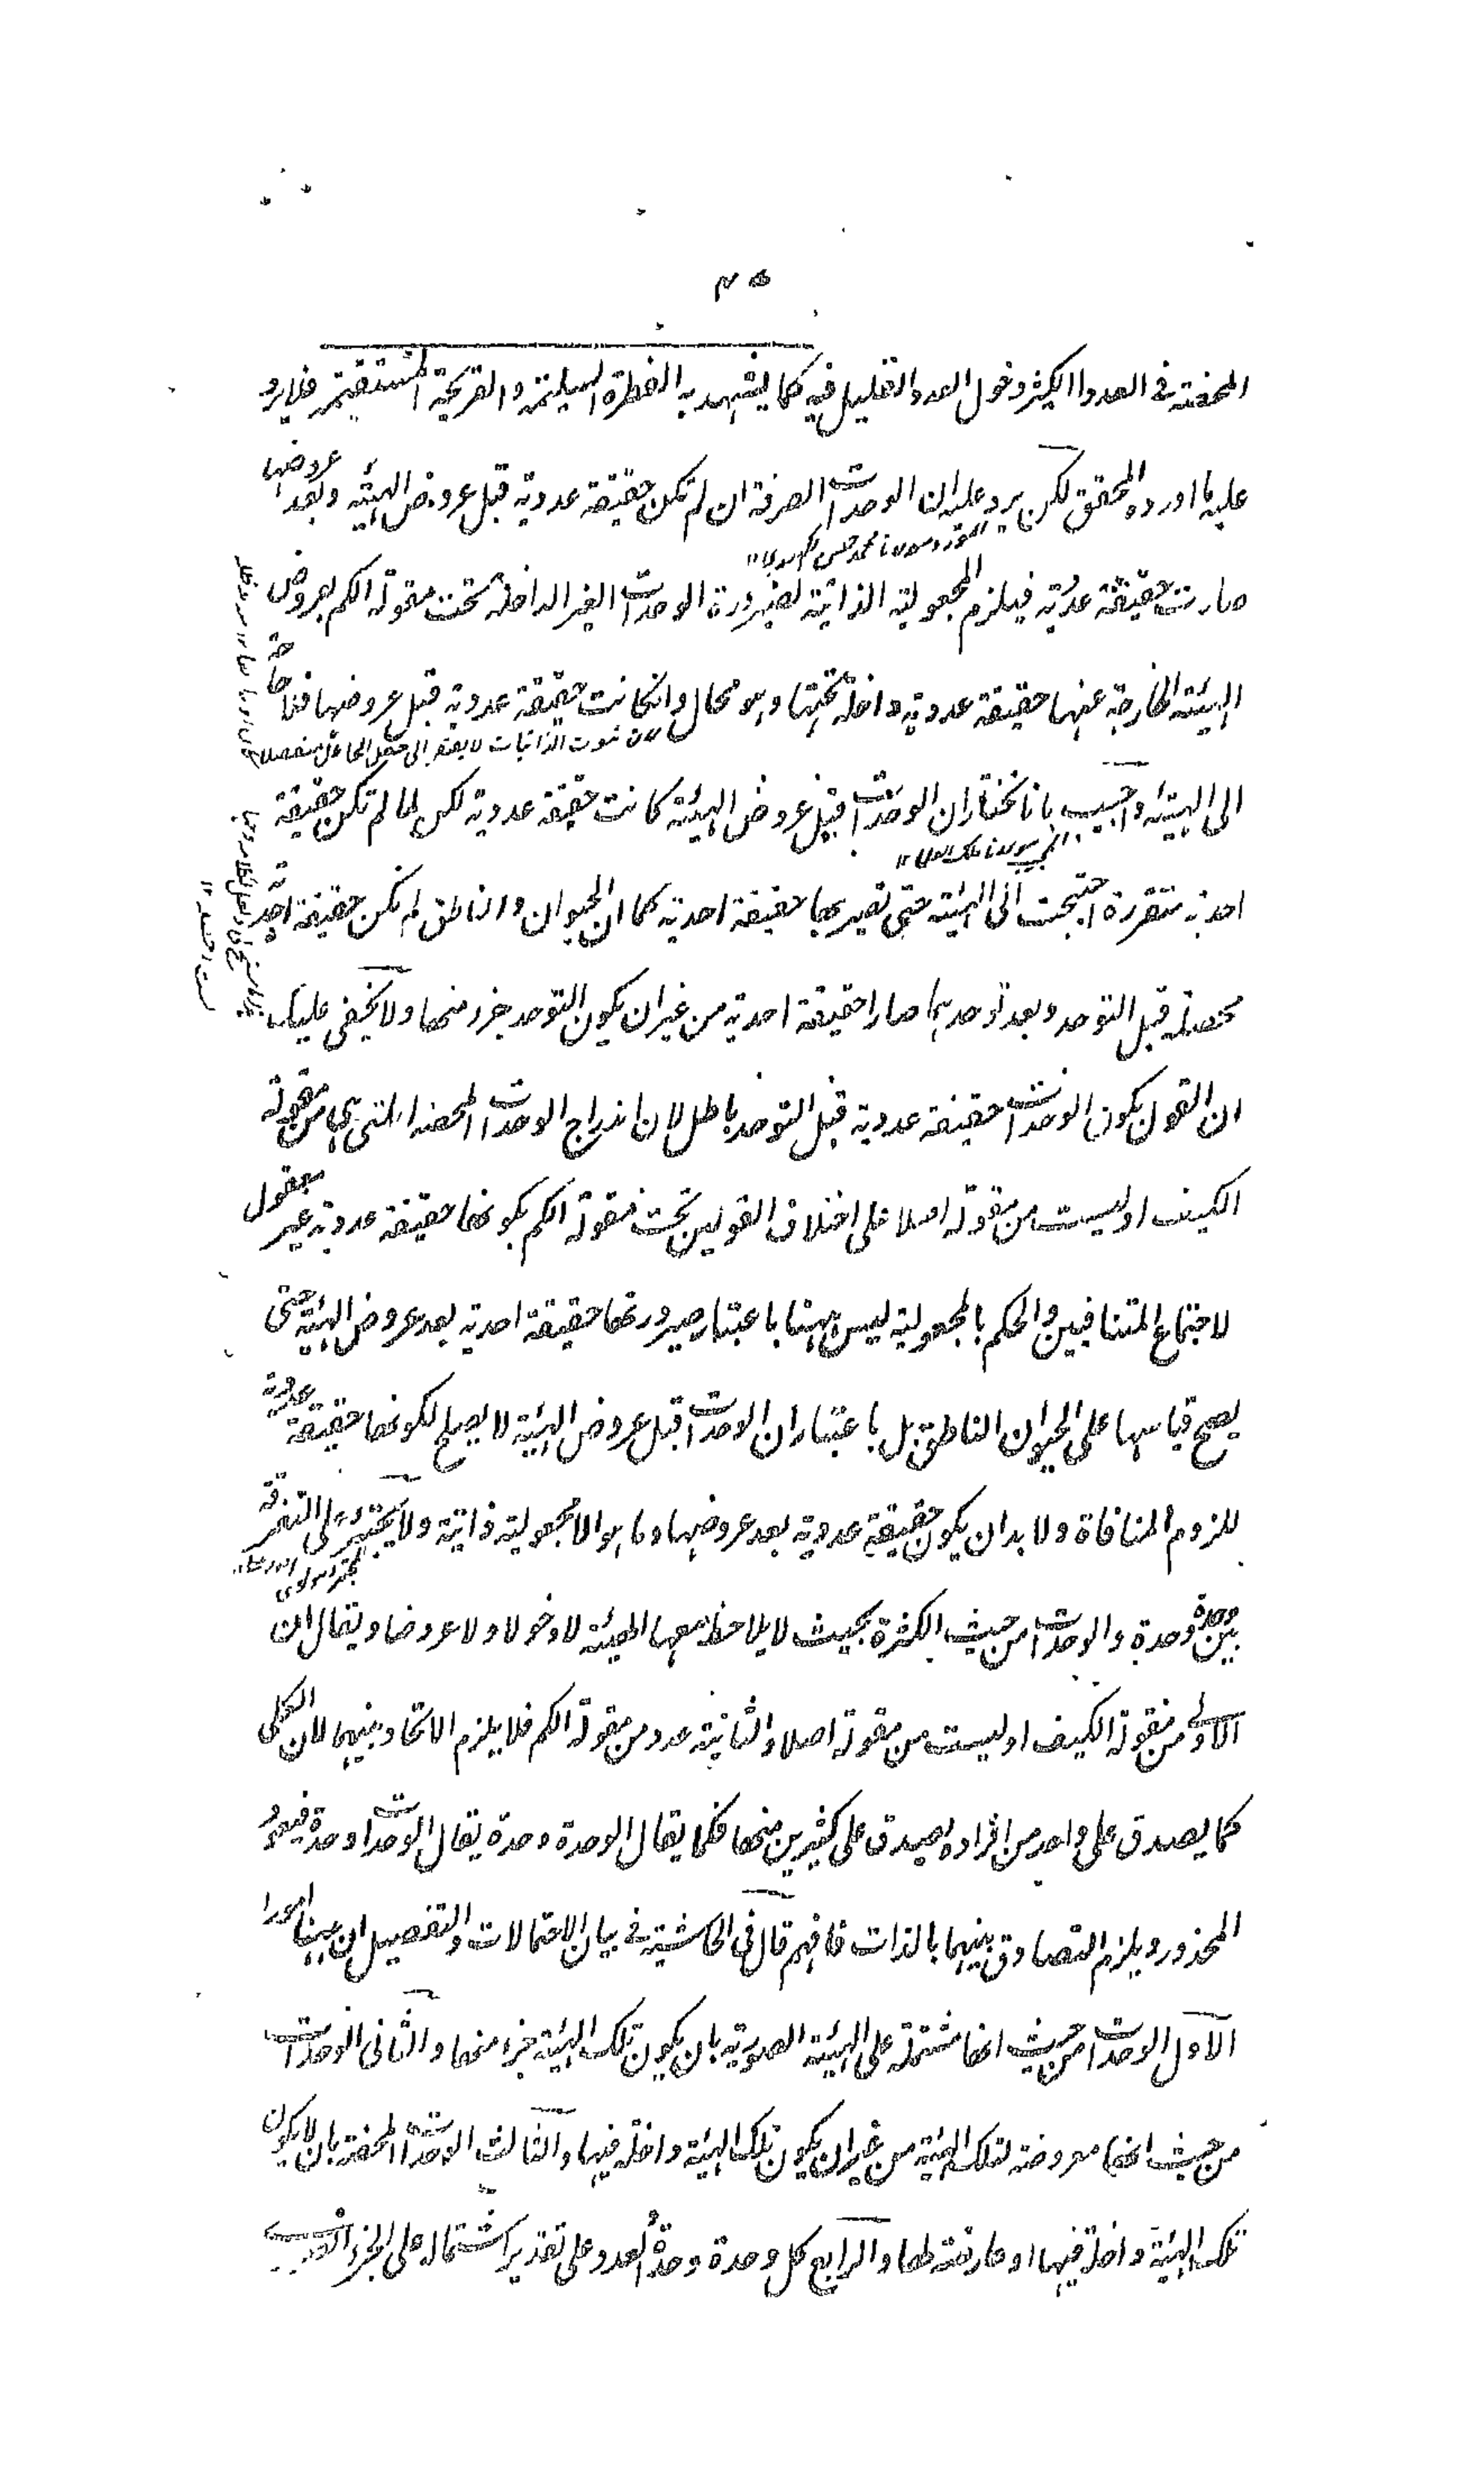 ٤٥
المحضة فى العدد الكثير دخول العدد القليل فيه كما يشهد به الفطرة السليمة والقريحة المستقيمة فلا يرد
عليه ما اورده المحقق لكن يرد عليه ان الوحدات الصرفة ان لم تكن حقيقة عددية قبل عروض الهيئة وبعد عروضها
المورد مولانا محمد حسن ١٢
صارت حقيقة عددية فيلزم المجعولية الذاتية لضرورة الوحدات الغير الداخلة تحت مقولة الكم بعروض
الهيئة الخارجة عنها حقيقة عددية داخلة تحتها وهو محال وان كانت حقيقة عددية قبل عروضها فما حاجة
لان ثبوت الذاتيات لا يفتقر الى
الى الهيئة واجيب بانا نختار ان الوحدات قبل عروض الهيئة كانت حقيقة عددية لكن لما لم تكن حقيقة
المجيب مولانا ١٢
احدية متقررة احتيجت الى الهيئة حتى تصير بها حقيقة احدية كما ان الحيوان والناطق لم تكن حقيقة احدية
محصلة قبل التوحد وبعد توحدهما صارا حقيقة احدية من غير ان يكون التوحد جزء منها ولا يخفى عليك
ان القول بكون الوحدات حقيقة عددية قبل التوحد باطل لان اندراج الوحدات المحضة التى هى من مقولة
الكيف او ليست من مقولة اصلا على اختلاف القولين تحت مقولة الكم بكونها حقيقة عددية غير معقول
لاجتماع المتنافيين والحكم بالمجعولية ليس ههنا باعتبار صيرورتها حقيقة احدية بعد عروض الهيئة حتى
يصح قياسها على الحيوان الناطق بل باعتبار ان الوحدات قبل عروض الهيئة لا يصلح لكونها حقيقة عددية
للزوم المنافاة ولا بد ان يكون حقيقة عددية بعد عروضها وما هو الا مجعولية ذاتية ولا يجترء على التفرقة
بين وحدة وحدة والوحدات من حيث الكثرة بحيث لا يلاحظ معها الهيئة لا دخولا ولا عروضا ويقال ان
الاولى من مقولة الكيف او ليست من مقولة اصلا والثانية عدد من مقولة الكم فلا يلزم الاتحاد بينهما لان الكلى
كما يصدق على واحد من افراده يصدق على كثيرين منها فكما يقال الوحدة وحدة يقال الوحدات وحدة فيعود
المحذور ويلزم التصادق بينهما بالذات فافهم قال فى الحاشية فى بيان الاحتمالات والتفصيل ان ههنا امورا
الاول الوحدات من حيث انها مشتملة على الهيئة الصورية بان يكون تلك الهيئة جزء منها والثانى الوحدات
من حيث انها معروضة لتلك الهيئة من غير ان يكون تلك الهيئة داخلة فيها والثالث الوحدات المحضة بان لا يكون
تلك الهيئة داخلة فيها او عارضة لها والرابع كل وحدة وحدة العدد على تقدير اشتماله على الجزء